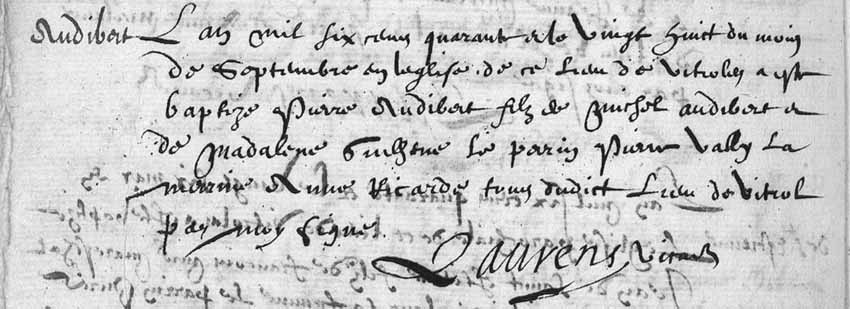 Audibert L'an mil six cens quarant et le vingt huict du mois
de Septembre en leglise de ce lieu de Vitroles a esté
baptize Pierre Audibert filz de Michel audibert et
de Madalene Guilhene le parin Pierre Vally la
merrine Anne Ricarde tous dudict Lieu de Vitrol
par moy signe
Laurens vicaire